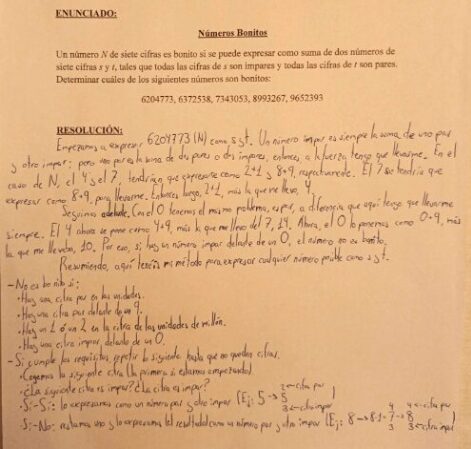 ENUNCIADO:
Números Bonitos
Un número N de siete cifras es bonito si se puede expresar como suma de dos números de
siete cifras s y t, tales que todas las cifras de s son impares y todas las cifras de t son pares.
Determinar cuáles de los siguientes números son bonitos:
6204773, 6372538, 7343053, 8993267, 9652393
RESOLUCIÓN:
Empezamos a expresar 6204773 (N) como s y t. Un número impar es siempre la suma de uno par
y otro impar; pero uno par es la suma de dos pares o dos impares, entonces a la fuerza tengo que llevarme. En el
caso de N, el 4 y el 7, tendrían que expresarse como 2+1 y 8+9, respectivamente. El 7 se tendría que
expresar como 8+9, para llevarme. Entonces luego, 2+1, más la que me llevo, 4.
Seguimos adelante. Con el 0 tenemos el mismo problema, es par, a diferencia que aquí tengo que llevarme
siempre. El 4 ahora se pone como 4+9, más la que me llevo del 7, 14. Ahora, el 0 lo ponemos como 0+9, más
la que me llevaba, 10. Por eso, si hay un número impar delante de un 0, el número no es bonito.
Resumiendo, aquí tenéis mi método para expresar cualquier número posible como s y t.
- No es bonito si:
· Hay una cifra par en las unidades.
· Hay una cifra par delante de un 9.
· Hay un 1 ó un 2 en la cifra de las unidades de millón.
· Hay una cifra impar delante de un 0.
- Si cumple los requisitos, repetir lo siguiente hasta que no queden cifras.
· Cogemos la siguiente cifra (la primera si estamos empezando)
· ¿La siguiente cifra es impar? ¿La cifra es impar?
· Si-Si: lo expresamos como un número par y otro impar (Ej: 5 → 5 2 ← cifra par 3 ← cifra impar)
· Si-No: restamos uno y lo expresamos el resultado como un número par y otro impar (Ej: 8 → 8-1=7 → 8 4 4 ← cifra par 3 3 ← cifra impar)